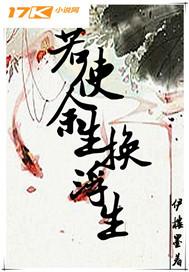 17K小说网
若使
余生换
浮生
伊楼墨 著